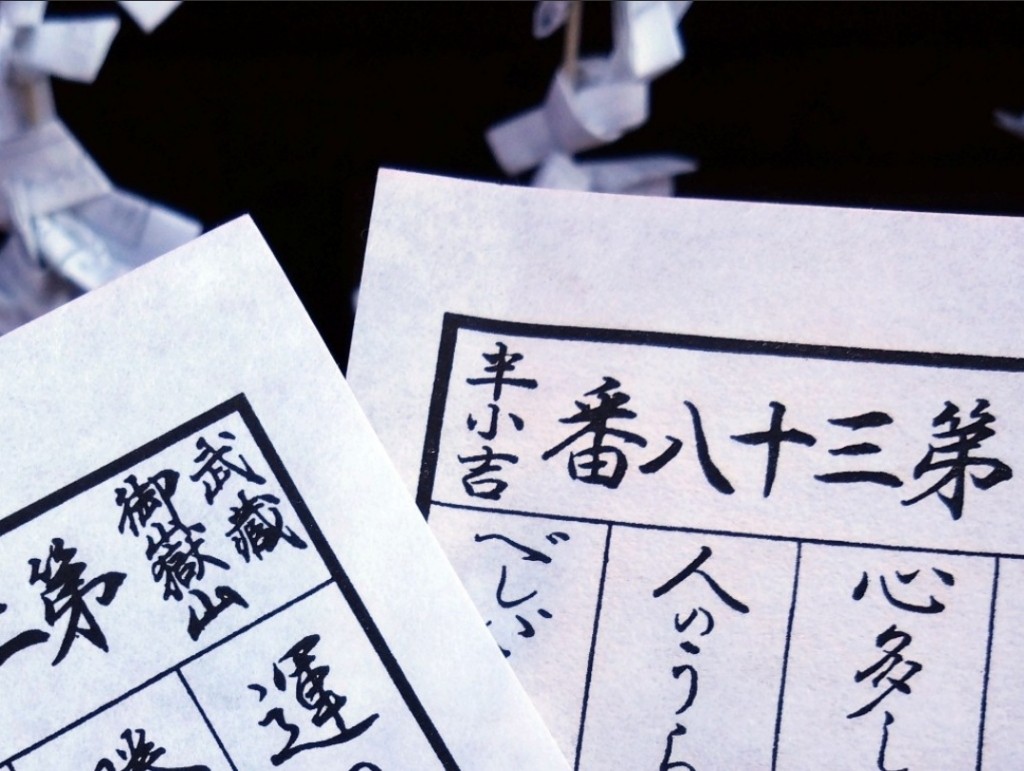 第三十八番
半小吉
心多し
人のうら
べし
武蔵
御嶽山
第
運